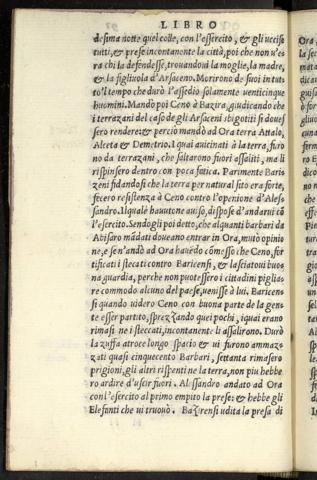 LIBRO
desima notte quel colle, con l'essercito, & gli uccise
tutti, & prese incontanente la città, poi che non u'e-
ra chi la defendesse, trouandoui la moglie, la madre,
& la figliuola d'Arsaceno. Morirono de suoi in tut-
to'l tempo che durò l'assedio solamente uenticinque
huomini. Mandò poi Ceno à Bazira, giudicando che
i terrazani del caso de gli Arsaceni sbigotiti si doues
sero rendere: & perciò mandò ad Ora terra Attalo,
Alceta & Demetrio. I quai auicinati à la terra, furo
no da terrazani, che saltarono fuori assaliti, ma li
rispinsero dentro con poca fatica. Parimente Bari-
zeni fidandosi che la terra per natural sito era forte,
fecero resistenza à Ceno contro l'openione d'Ales-
sandro. Il quale hauutone auiso, dispose d'andarui cō
l'essercito. Sendogli poi detto, che alquanti barbari da
Abisaro mādati doueano entrar in Ora, mutò opinio
ne, e sen'andò ad Ora hauēdo cōmesso che Ceno, for
tificati i stecati contro Baricensi, & lasciatoui buo-
na guardia, perche non potessero i cittadini piglia-
re commodo alcuno del paese, uenisse à lui. Baricen-
si quando uidero Ceno con buona parte de la gen-
te esser partito, sprezzando quei pochi, i quai erano
rimasi ne i steccati, incontanente li assalirono. Durò
la zuffa atroce longo spacio & ui furono ammaz-
zati quasi cinquecento Barbari, settanta rimasero
prigioni, gli altri rispenti ne la terra, non piu hebbe
ro ardire d'uscir fuori. Alessandro andato ad Ora
con l'essercito al primo empito la prese: & hebbe gli
Elefanti che ui trouò. Bazirensi udita la presa di